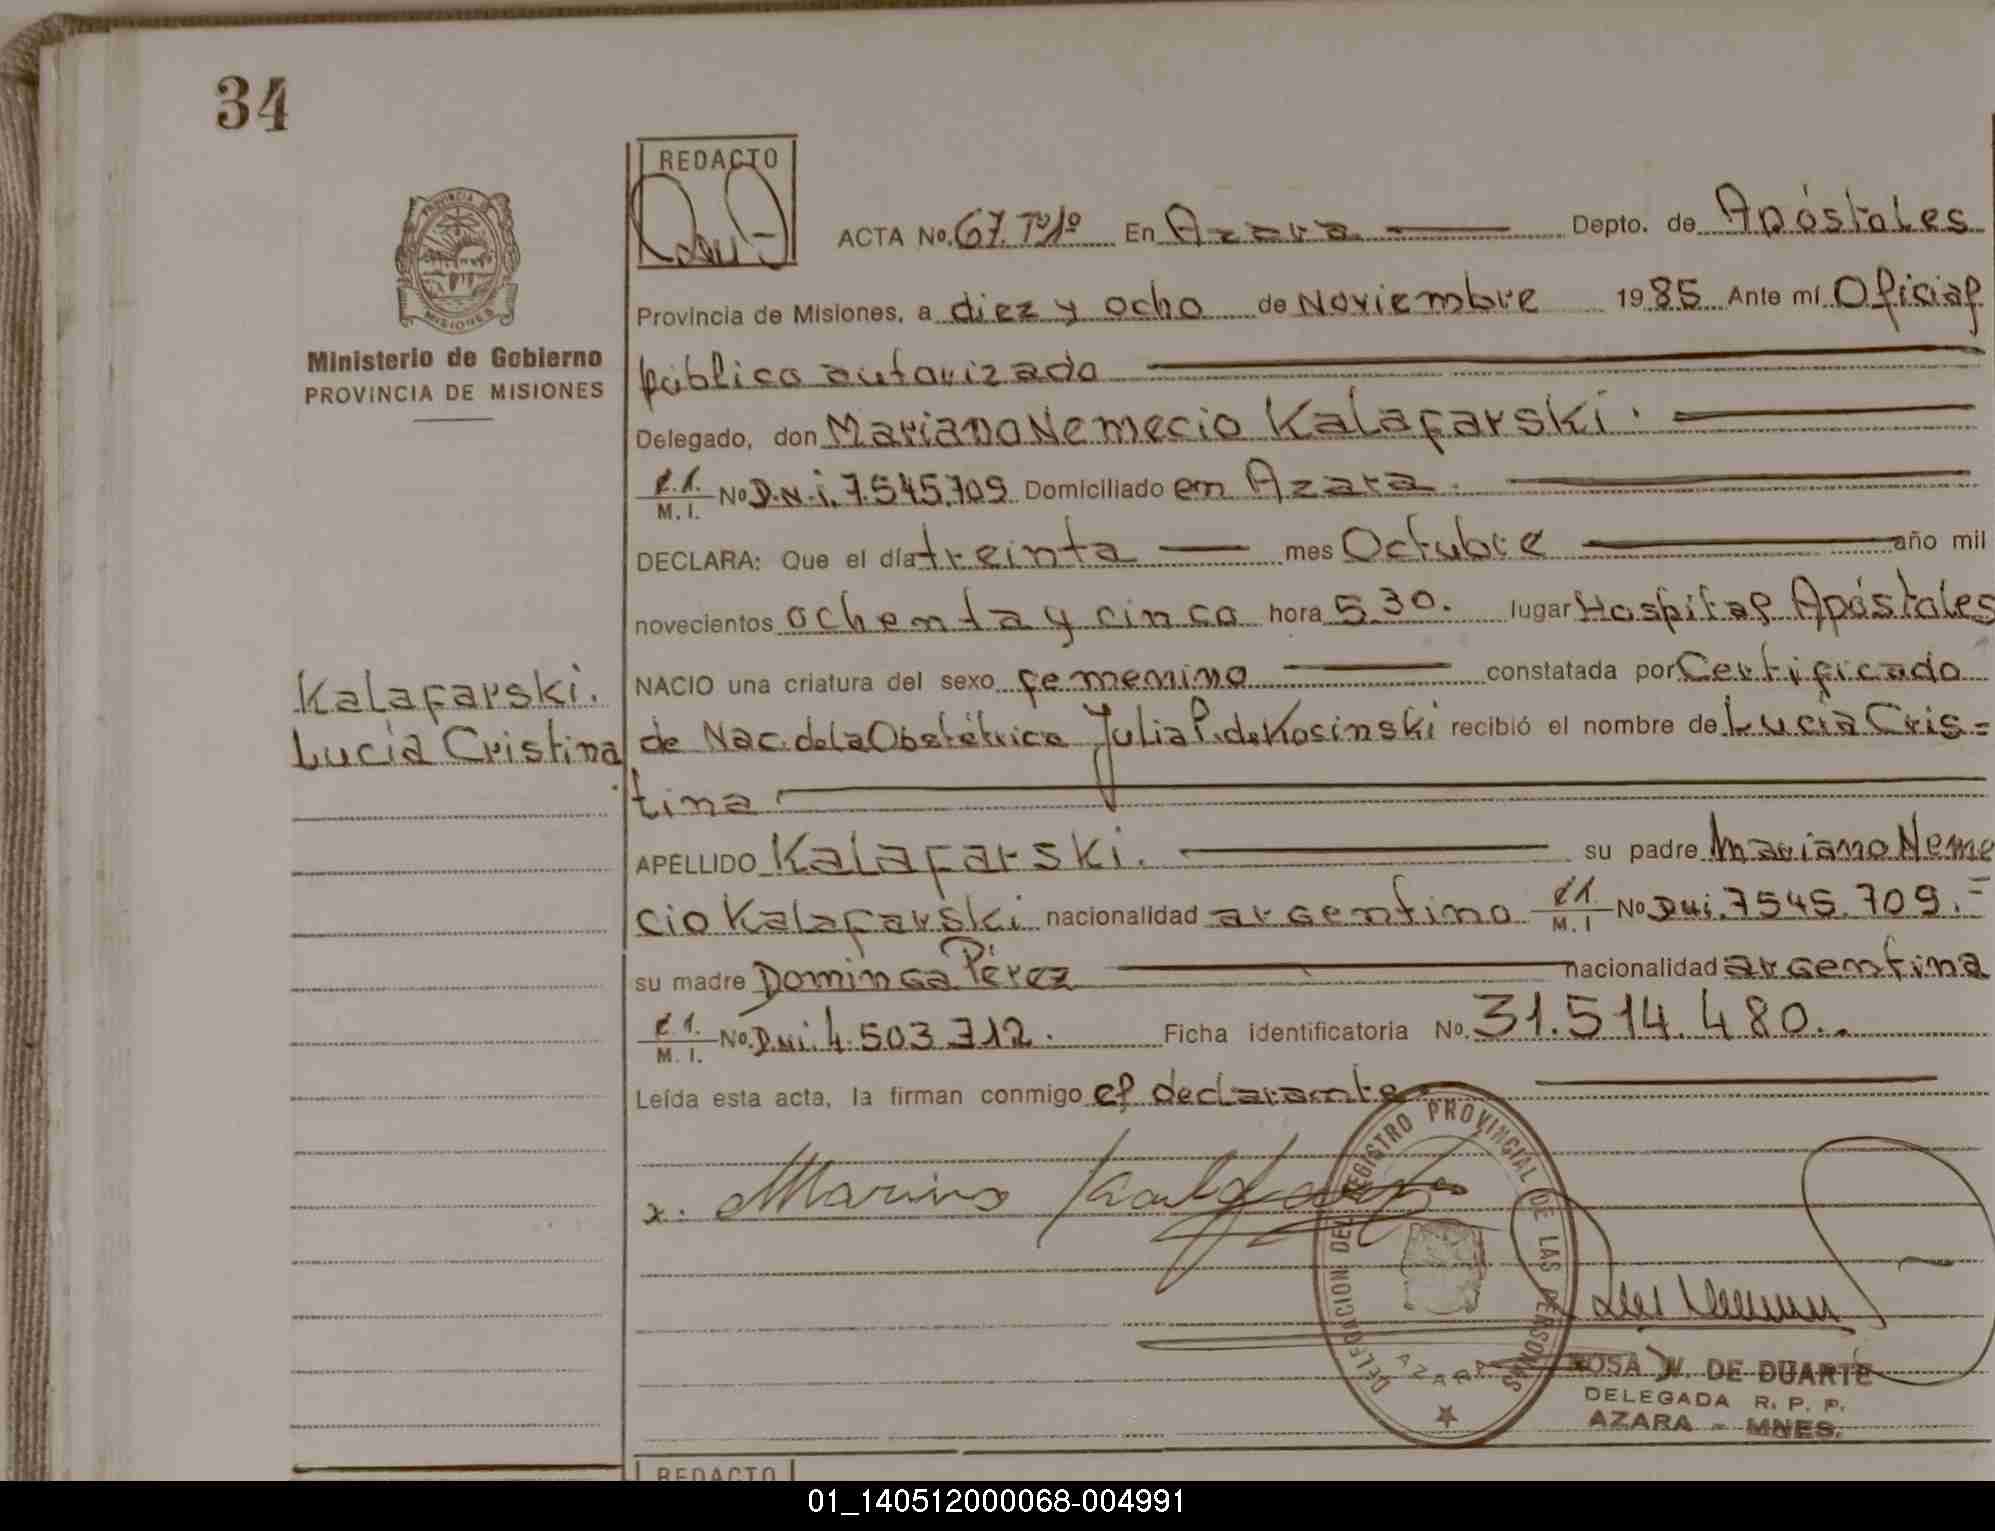 34
REDACTO
PROVINCIA DE
MISIONES
Ministerio de Gobierno
PROVINCIA DE MISIONES
ACTA No. 67. Tº 1º En Azara Depto. de Apóstoles
Provincia de Misiones, a diez y ocho de Noviembre 1985 Ante mí Oficial
público autorizado
Delegado, don Mariano Nemecio Kalafarski.
C.I. M. I. No D.N.i. 7.545.709 Domiciliado en Azara.
DECLARA: Que el día treinta mes Octubre año mil
novecientos ochenta y cinco hora 5.30. lugar Hospital Apóstoles
NACIO una criatura del sexo femenino constatada por Certificado
de Nac. de la Obstétrica Julia P. de Kosinski recibió el nombre de Lucía Cris=
tina
Kalafarski.
Lucía Cristina
APELLIDO Kalafarski. su padre Mariano Neme
cio Kalafarski nacionalidad argentino C.I. M. I No Dni. 7545.709.=
su madre Dominga Pérez nacionalidad argentina
C.I. M. I. No. Dni 4.503.712. Ficha identificatoria No. 31.514.480..
Leída esta acta, la firman conmigo el declarante.
x. Mariano Kalafarski
DELEGACION DEL REGISTRO PROVINCIAL DE LAS PERSONAS
AZARA
ROSA N. DE DUARTE
DELEGADA R. P. P.
AZARA - MNES.
REDACTO
01_140512000068-004991